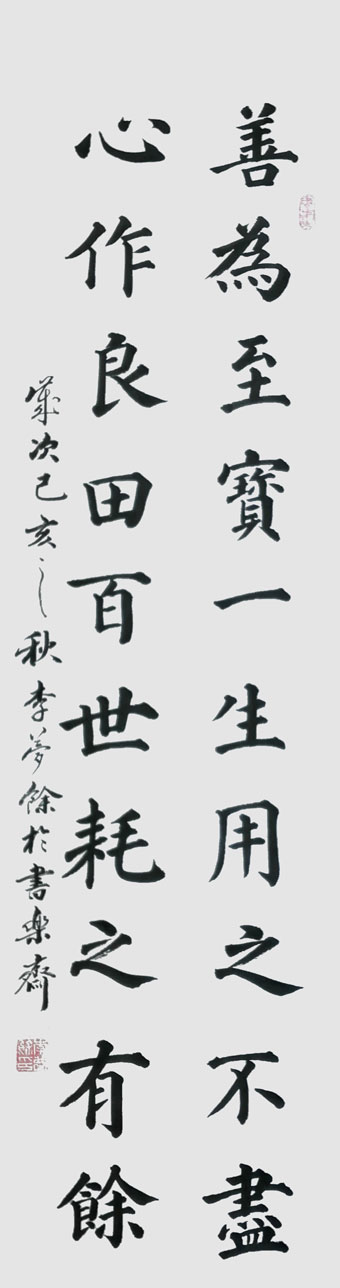 善為至寶一生用之不盡
心作良田百世耗之有餘
歲次己亥之秋李夢餘於書樂齋